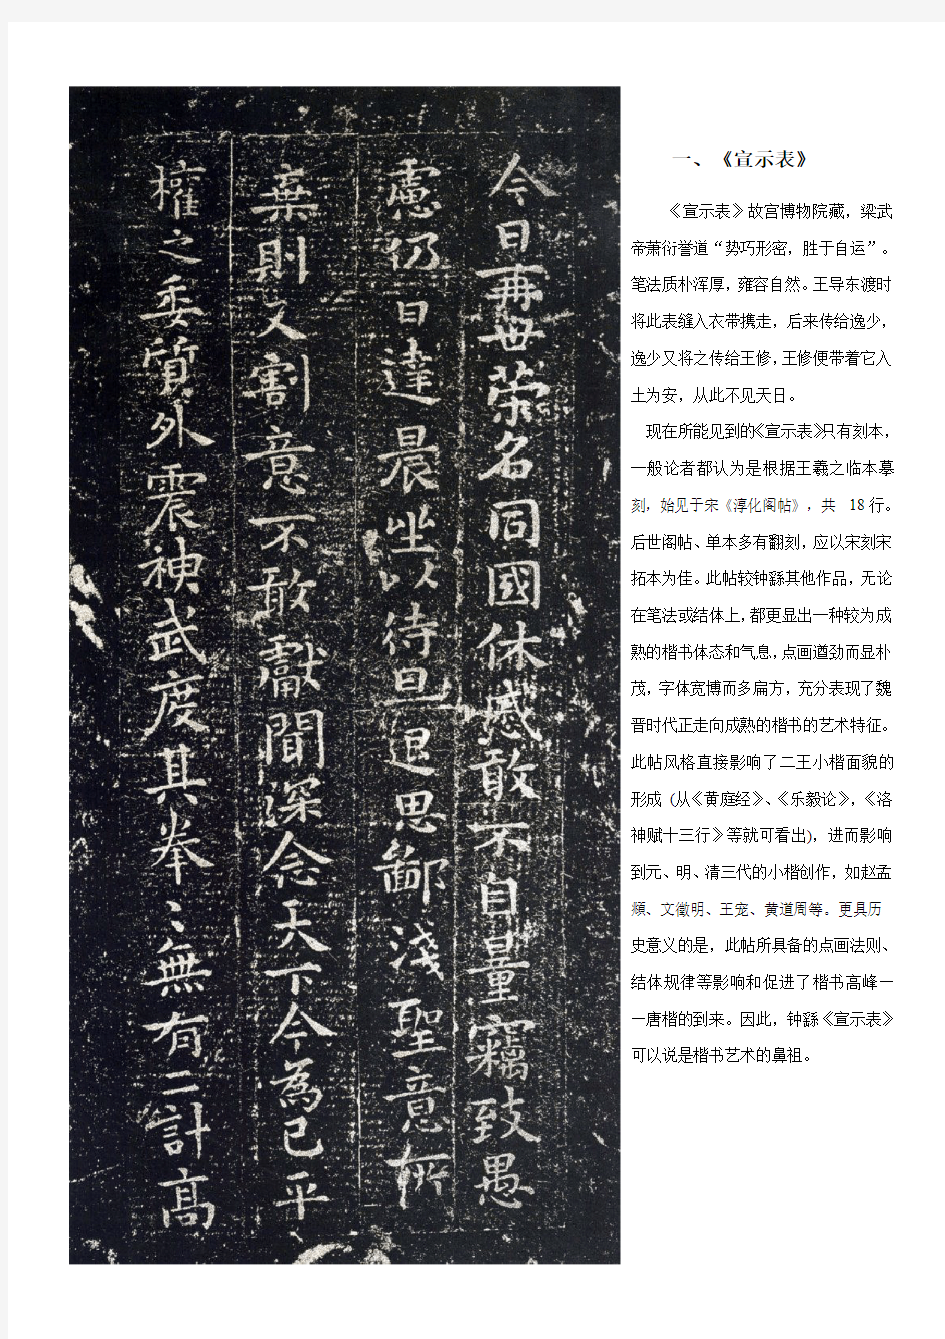 今日再世榮名同國休慼敢不自量竊致愚
慮仍日達晨坐以待旦退思鄙淺聖意所
棄則又割意不敢獻聞深念天下今為已平
權之委質外震神武度其拳〻無有二計高
一、《宣示表》
《宣示表》故宫博物院藏，梁武
帝萧衍誉道“势巧形密，胜于自运”。
笔法质朴浑厚，雍容自然。王导东渡时
将此表缝入衣带携走，后来传给逸少，
逸少又将之传给王修，王修便带着它入
土为安，从此不见天日。
现在所能见到的《宣示表》只有刻本，
一般论者都认为是根据王羲之临本摹
刻，始见于宋《淳化阁帖》，共 18行。
后世阁帖、单本多有翻刻，应以宋刻宋
拓本为佳。此帖较钟繇其他作品，无论
在笔法或结体上，都更显出一种较为成
熟的楷书体态和气息，点画遒劲而显朴
茂，字体宽博而多扁方，充分表现了魏
晋时代正走向成熟的楷书的艺术特征。
此帖风格直接影响了二王小楷面貌的
形成 (从《黄庭经》、《乐毅论》，《洛
神赋十三行》等就可看出)，进而影响
到元、明、清三代的小楷创作，如赵孟
頫、文徵明、王宠、黄道周等。更具历
史意义的是，此帖所具备的点画法则、
结体规律等影响和促进了楷书高峰—
—唐楷的到来。因此，钟繇《宣示表》
可以说是楷书艺术的鼻祖。